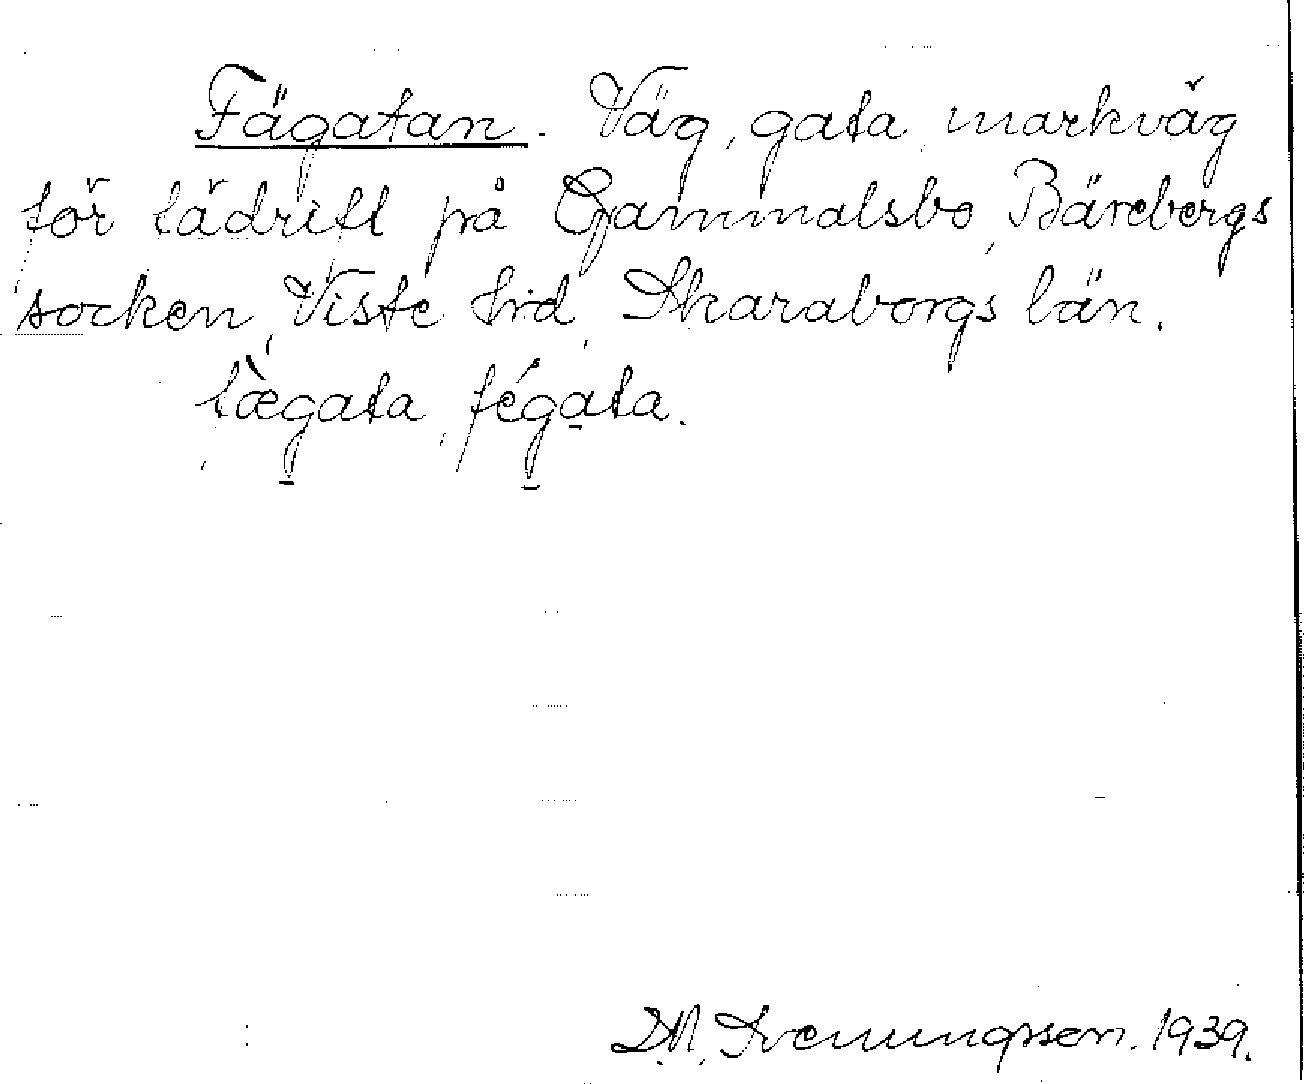 Fägatan. Väg, gata, markväg
för fädrift på Gammalsbo, Bärebergs
socken, Viste hrd, Skaraborgs län.
fæ̀gata, fégata.
D.N. Svenungsson. 1939.